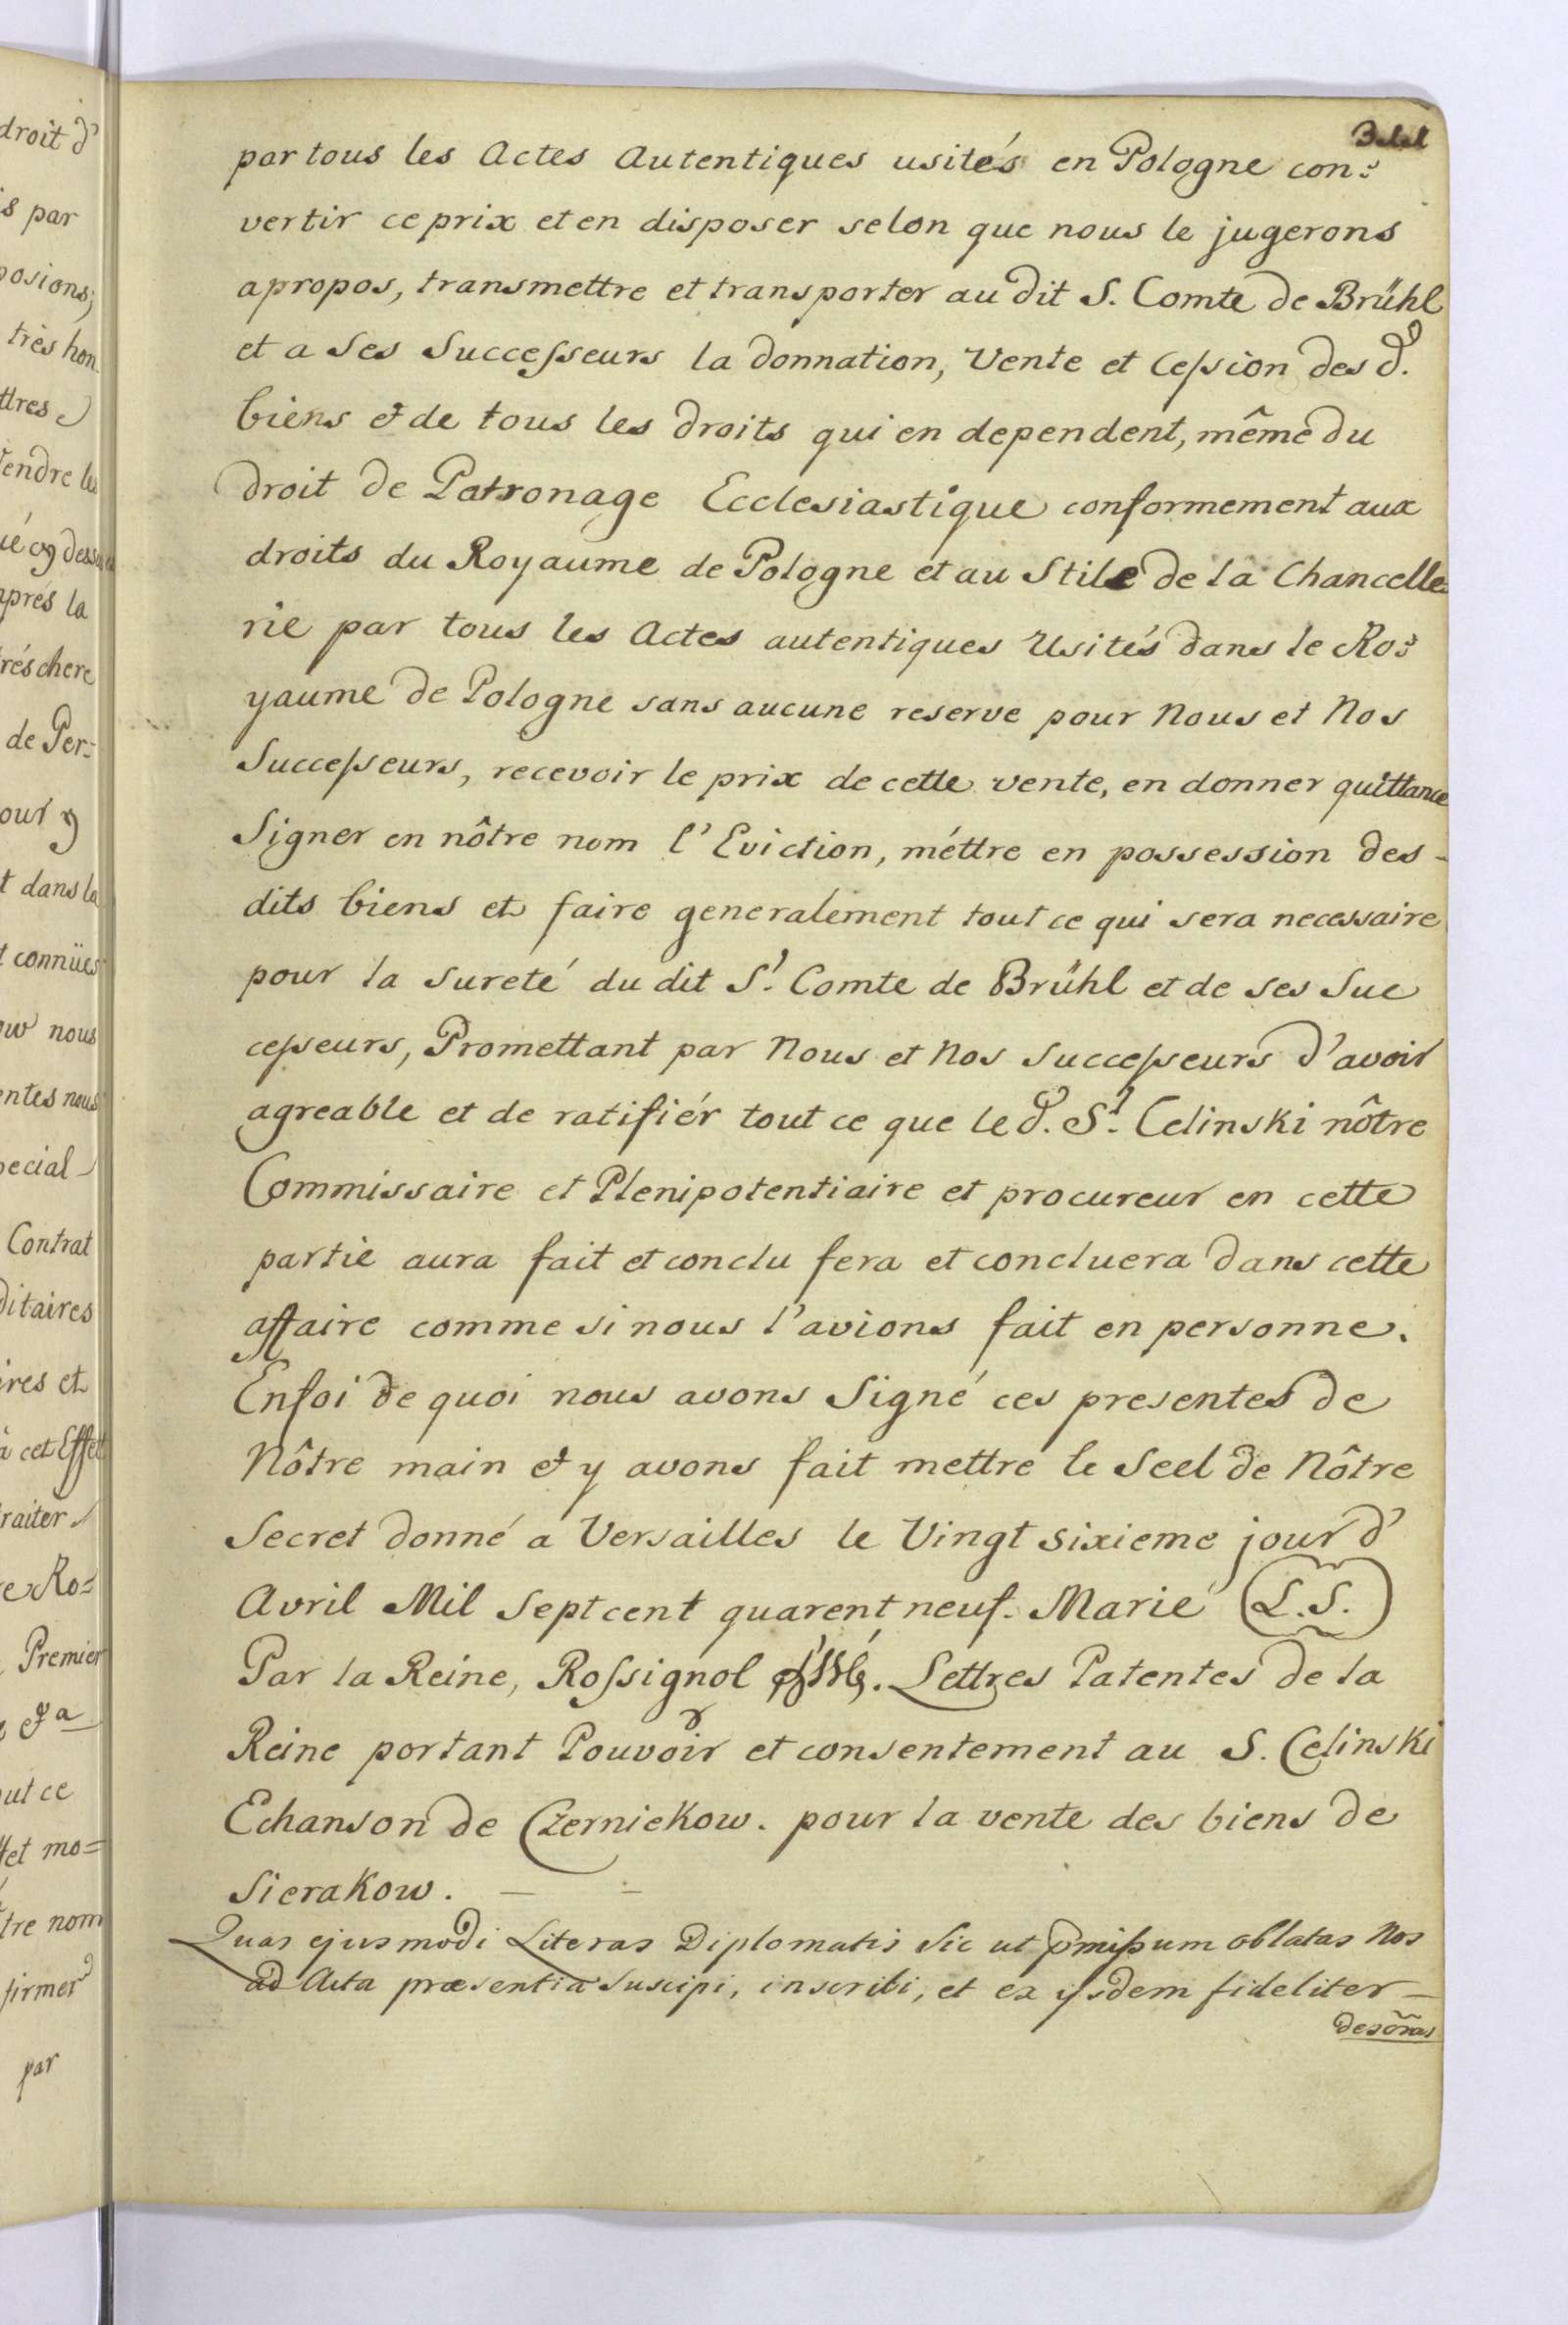 droit d'
s par
posions;
très hon
ttres
endre les
ué cy dessu
après la
rés chere
de Per=
our y
t dans la
t connües
ow nous
entes nous
pecial
Contrat
ditaires
ires et
à cet Effet
traiter
e Ro=
Premier
& a
out ce
et mo=
tre nom
firmer
par
par tous les Actes Autentiques usités en Pologne con=
vertir ce prix et en disposer selon que nous le jugerons
a propos, transmettre et transporter au dit S. Comte de Brühl
et a Ses Successeurs la donnation, Vente et Cession des d.
biens & de tous les droits qui en dependent, même du
droit de Patronage Ecclesiastique conformement aux
droits du Royaume de Pologne et au Stile de la Chancelle=
rie par tous les Actes autentiques Usités dans le Ro=
yaume de Pologne sans aucune reserve pour Nous et Nos
Successeurs, recevoir le prix de cette vente, en donner quittance
Signer en nôtre nom l'Eviction, méttre en possession des-
dits biens et faire generalement tout ce qui sera necessaire
pour la sureté du dit Sr. Comte de Brühl et de ses Suc
cesseurs, Promettant par Nous et Nos Successeurs d'avoir
agreable et de ratifiér tout ce que le d. Sr. Celinski nôtre
Commissaire et Plenipotentiaire et procureur en cette
partie aura fait et conclu fera et concluera dans cette
affaire comme si nous l'avions fait en personne.
En foi de quoi nous avons Signé ces presentes de
Nôtre main & y avons fait mettre le Seel de Nôtre
Secret donné a Versailles le Vingt sixieme jour d'
Avril Mil Sept cent quarent neuf. Marie (L.S.)
Par la Reine, Rossignol Lettres Patentes de la
Reine portant Pouvoir et consentement au S. Celinski
Echanson de Czerniekow. pour la vente des biens de
Sierakow. — —
Quas ejusmodi Literas Diplomatis Sic ut pmissum oblatas Nos
ad Acta præsentia Suscipi, inscribi, et ex ijsdem fideliter —